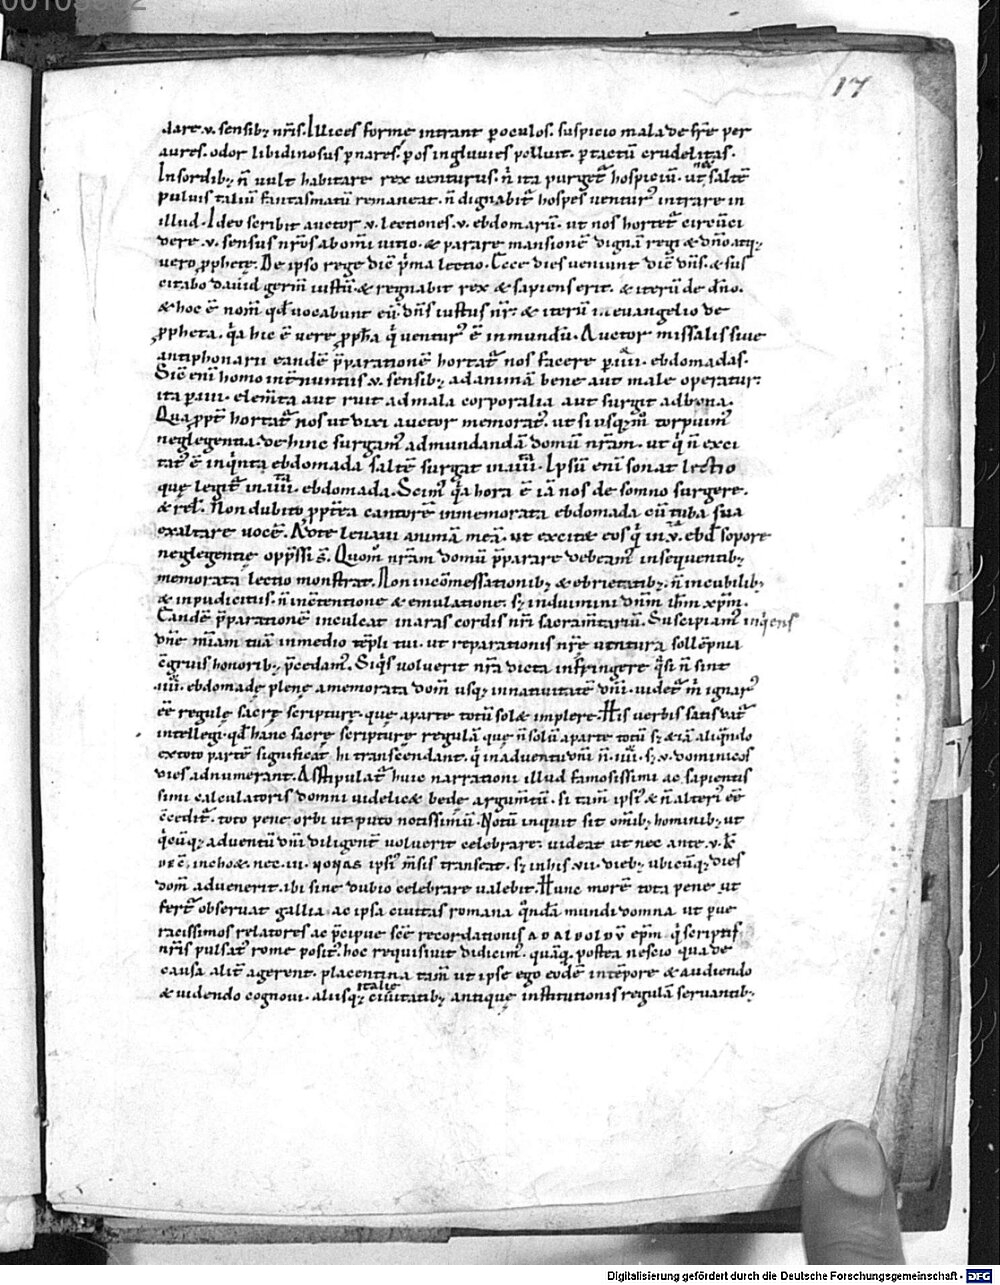 17
dare .v. sensib; nr̄is. Illices forme intrant ꝑ oculos. suspicio mala de frē per
aures. odor libidinosus ꝑ nares. ꝑ os ingluvies polluit. ꝑ tactū crudelitas.
In sordib; n̄ vult habitare rex venturus. n̄ ita purget̄ hospiciū. ut saltē
pulvis taliū fantasmatū remaneat. n̄ dignabit̄ hospes ventur᾿ intrare in
illud. Ideo scribit auctor .v. lectiones .v. ebdomarū. ut nos hortet̄ circūci
dere .v. sensus nr̄os ab omī vitio. & parare mansionē dignā regi & dn̄o atq;
vero ꝓphete. De ipso rege dic̄ p̄ma lectio. Ecce dies veniunt dic̄ dn̄s. & sus
citabo david germ̄ iustū. & regnabit rex & sapiens erit. & iterū de dn̄o.
& hoc ē nom̄ qđ vocabunt eū. dn̄s iustus nr̄. & iterū in evangelio de
ꝓpheta. q̇a hic ē vere ꝓph̄a q̇ ventur᾿ ē in mundū. Auctor missalis sive
antiphonarii eandē p̄parationē hortat̄ nos facere ꝑ .iiii. ebdomadas.
Sic̄ enī homo int̄nuntiis .v. sensib; ad animā bene aut male operatur.
ita ꝑ .iiii. elem̄ta aut ruit ad mala corporalia aut surgit ad bona.
Qua ꝓpt̄ hortat̄ nos ut dixi auctor memorat᾿. ut si usq; m̊ torpuim᾿
neglegentia de hinc surgam᾿ ad mundandā domū nr̄am. ut q̇ n̄ exci
tat᾿ ē in q̇nta ebdomada saltē surgat in .iiii. Ipsū enī sonat lectio
quę legit̄ in .iiii. ebdomada. Scim᾿ q̇a hora ē iā nos de somno surgere.
& rel̄. Non dubito ꝓpt̄ea cantorē in memorata ebdomada cū tuba sua
exaltare vocē. Ad te levavi animā meā. ut excitet eos q̇ in .v. ebđ sopore
neglegentię opp̄ssi s̄. Quom̊ nr̄am domū p̄parare debeam᾿ in sequentib;
memorata lectio monstrat. Non in com̄essationib; & ebrietatib;. n̄ in cubilib;
& inpudicitiis. n̄ in c̄tentione & emulatione. s; induimini dn̄m ih̄m xp̄m.
Eandē p̄parationē inculcat in aras cordis nr̄i sacram̄tariū. Suscipiam᾿ inq̇ens
dn̄e mīam tuā in medio tēpli tui. ut reparationis nr̄ę ventura sollēpnia
c̄gruis honorib; p̄cedam᾿. Siq̇s voluerit nr̄a dicta infringere q̇si n̄ sint
.iiii. ebdomadę plenę a memorata dom̄ usq; in nativitatē dn̄i. videt̄ m̄ ignar᾿
eē regulę sacrę scripturę. quę a parte totū solet implere. His verbis satis dat̄
intellegi. qđ hanc sacrę scripturę regulā quę n̄ solū a parte totū s; & iā aliq̇ndo
ex toto partē significat. hi transcendant. q̇ in adventu dn̄i n̄ .iiii. s; .v. dominicos
dies adnumerant. Astipulat̄ huic narrationi illud famosissimi ac sapientis
simi calculatoris domni videlicet bedę argum̄tū. si tam̄ ipsi᾿ & n̄ alteri᾿ eē
c̄cedit̄. toto pene orbi ut puto notissimū. Notū inquit sit om̄ib; hominib; ut
q̇cūq; adventū dn̄i diligent̄ voluerit celebrare. videat ut nec ante .v. k̄
dec̄. inchoet. nec .iii. nonas ipsi᾿ m̄sis transeat. s; in his .vii. dieb; ubicūq; dies
dom̄ advenerit. ibi sine dubio celebrare valebit. Hunc morē tota pene ut
fert̄ observat gallia ac ipsa civitas romana q̇ndā mundi domna ut p ve
racissimos relatores ac p̄cipue sc̄ę recordationis adalpoldū ep̄m q̇ scriptis
nr̄is pulsat᾿ rome posit᾿. hoc requisivit didicim᾿. quāq; postea nescio qua de
causa alit̄ agerent. placentina tam̄ ut ipse ego eodē in tēpore & audiendo
& videndo cognovi. aliisq; italię civitatib; antiquę institutionis regulā servantib;
Digitalisierung gefördert durch die Deutsche Forschungsgemeinschaft - DFG